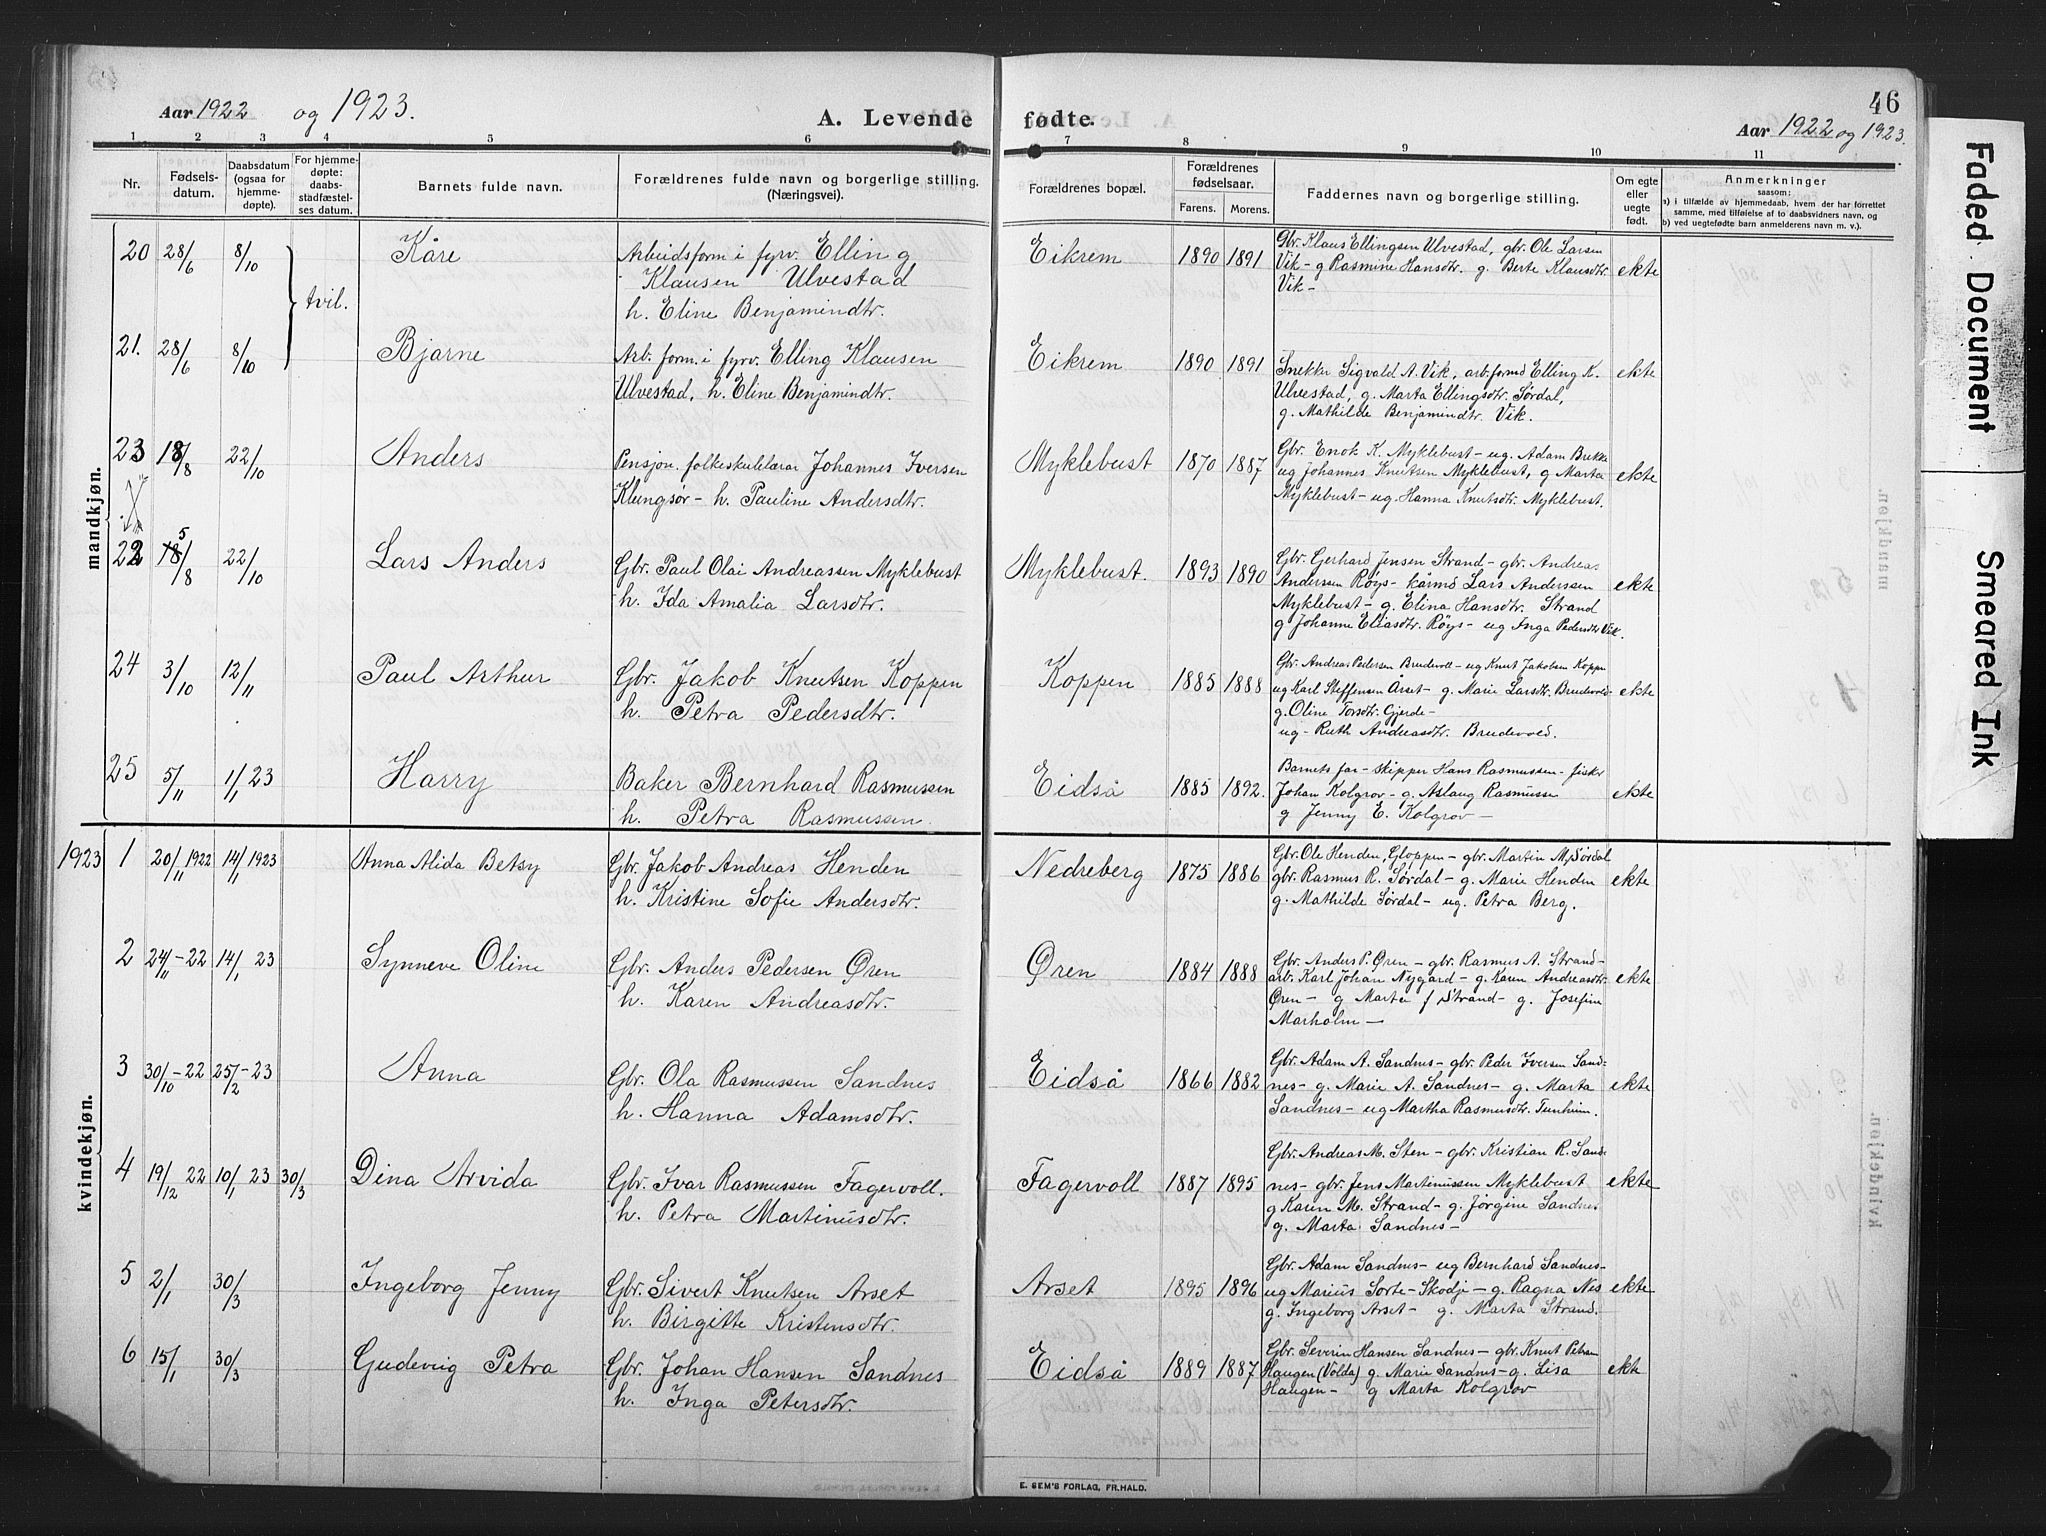 46
Aar 1922 og 1923.
A. Levende fødte.
Aar 1922 og 1923.
1 2 3 4 5 6 7 8 9 10 11
Nr.
Fødsels-
datum.
Daabsdatum
(ogsaa for
hjemme-
døpte).
For hjemme-
døpte:
daabs-
stadfæstel-
ses datum.
Barnets fulde navn.
Forældrenes fulde navn og borgerlige stilling.
(Næringsvei).
Forældrenes bopæl.
Forældrenes
fødselsaar.
Farens. Morens.
Faddernes navn og borgerlige stilling.
Om egte
eller
uegte
født.
Anmerkninger
saasom:
a) i tilfælde av hjemmedaab, hvem der har forrettet
samme, med tilføielse af to daabsvidners navn, og
b) ved uegtefødte barn anmelderens navn m. v.).
mandkjøn.
20 28/6 8/10 tvil. Kåre
Arbeidsform i fyrv. Elling
Klausen Ulvestad
h. Eline Benjamindtr.
Eikrem 1890 1891
Gbr. Klaus Ellingsen Ulvestad, gbr. Ole Larsen
Vik - g Rasmine Hansdtr. g. Berte Klausdtr
Vik -
ekte
21. 28/6 8/10 Bjarne
Arb. form. i fyrv. Elling Klausen
Ulvestad, h. Eline Benjamindtr.
Eikrem 1890 1891
Snekker Sigvald A. Vik, arb.formd Elling K.
Ulvestad, g. Marta Ellingsdtr. Sørdal,
g. Mathilde Benjamindtr. Vik.
ekte
23 18/8 22/10 Anders
Pensjon. folkeskulelærar Johannes Iversen
Klungsør - h. Pauline Andersdtr.
Myklebust 1870 1887
Gbr. Enok K. Myklebust - ug. Adam Brekke
ug Johannes Knutsen Myklebust, g Marta
Myklebust - ug. Hanna Knutsdtr. Myklebust.
ekte
22 5/8 22/10 Lars Anders
Gbr. Paul Olai Andreassen Myklebust
h. Ida Amalia Larsdtr.
Myklebust. 1893 1890
Gbr. Gerhard Jensen Strand - gbr. Andreas
Anderssen Røys - kårmd Lars Anderssen
Myklebust - g. Elina Hansdtr. Strand
g Johanne Eliasdtr. Røys - ug Inga Pedersdtr Vik.
ekte
24 3/10 12/11 Paul Arthur
Gbr. Jakob Knutsen Koppen
h. Petra Pedersdtr.
Koppen 1885 1888
Gbr. Andreas Pedersen Brudevoll - ug Knut Jakobsen Koppen
ug Karl Steffensen Årset - g. Marie Larsdtr. Brudevold -
g. Oline Torsdtr. Gjerde -
ug - Ruth Andreasdtr. Brudevold.
ekte
25 5/11 1/1 23 Harry
Baker Bernhard Rasmussen
h. Petra Rasmussen.
Eidså 1885 1892.
Barnets far - skipper Hans Rasmussen - fisker
Johan Kolgrov - g. Aslaug Rasmussen
g Jenny E. Kolgrov -
ekte
kvindekjøn.
1923 1 20/11 1922 14/1 1923 Anna Alida Betsy
Gbr. Jakob Andreas Henden
h. Kristine Sofie Andersdtr.
Nedreberg 1875 1886
Gbr. Ole Henden, Gloppen - gbr. Martin M. Sørdal
gbr. Rasmus R. Sørdal - g. Marie Henden
g. Mathilde Sørdal - ug. Petra Berg.
ekte
2 24/11 - 22 14/1 23 Synneve Oline
Gbr. Anders Pedersen Øren
h. Karen Andreasdtr.
Øren 1884 1888
Gbr. Anders P. Øren - gbr. Rasmus A. Strand -
arb. Karl Johan Nygard - g. Karen Andreasdtr.
Øren - g Marta J Strand - g. Josefine
Marholm -
ekte
3 30/10 - 22 25/2 - 23 Anna
Gbr. Ola Rasmussen Sandnes
h. Hanna Adamsdtr.
Eidså 1866 1882
Gbr. Adam A. Sandnes - gbr. Peder Iversen Sand-
nes - g. Marie A. Sandnes - g. Marta
Sandnes - ug Martha Rasmusdtr. Tunheim.
ekte
4 19/12 22 10/1 23 30/3 Dina Arvida
Gbr. Ivar Rasmussen Fagervoll.
h. Petra Martinusdtr.
Fagervoll 1887 1895
Gbr. Andreas M. Sten - gbr. Kristian R. Sand-
nes - gbr. Jens Martinussen Myklebust
g Karen M. Strand - g. Jørgine Sandnes
g. Marta Sandnes -
ekte
5 2/1 30/3 Ingeborg Jenny
Gbr. Sivert Knutsen Årset
h. Birgitte Kristensdtr.
Arset 1895 1896
Gbr. Adam Sandnes - ug Bernhard Sandnes -
ug Marius Sorte - Skodje - g. Ragna Nes
g. Ingeborg Årset - g. Marta Strand.
ekte
6 15/1 30/3 Gudveig Petra
Gbr. Johan Hansen Sandnes
h. Inga Petersdtr.
Eidså 1889 1887
Gbr. Severin Hansen Sandnes - gbr. Knut Petersen
Haugen (Volda) g. Marie Sandnes - g. Lisa
Haugen - g Marta Kolgrov
ekte
E. SEM'S FORLAG, FR.HALD.
Faded Document
Smeared Ink